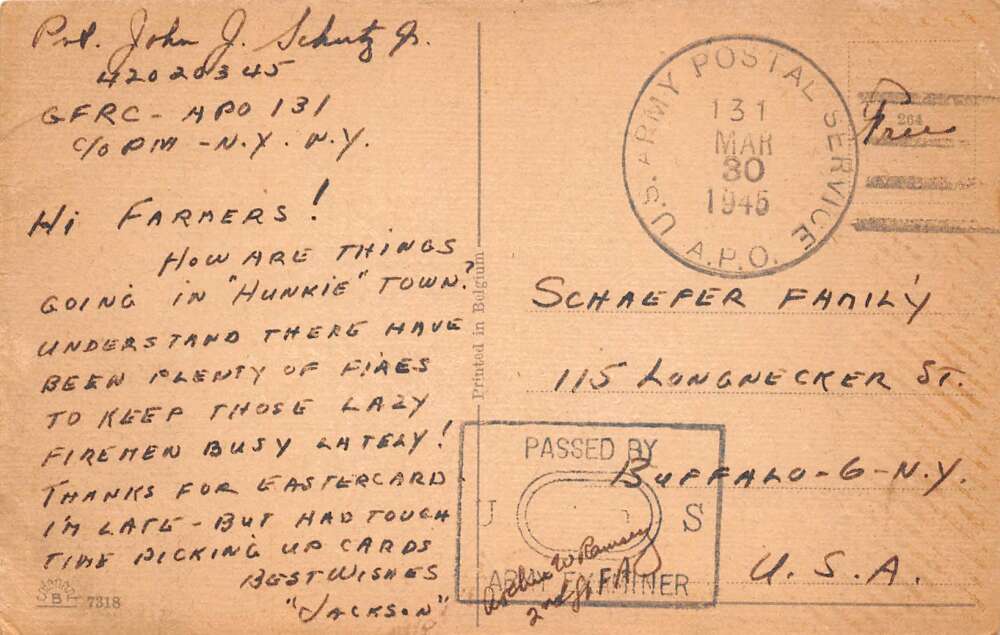 Pvt. John J. Schutz Jr.
42020345
GFRC - APO 131
c/o PM - N.Y. N.Y.
HI FARMERS!
HOW ARE THINGS
GOING IN "HUNKIE" TOWN?
UNDERSTAND THERE HAVE
BEEN PLENTY OF FIRES
TO KEEP THOSE LAZY
FIREMEN BUSY LATELY!
THANKS FOR EASTERCARD.
I'M LATE - BUT HAD TOUGH
TIME PICKING UP CARDS
BEST WISHES
"JACKSON"
B 7318
Printed in Belgium
U.S. ARMY POSTAL SERVICE
131
MAR
30
1945
A.P.O.
Free
264
SCHAEFER FAMILY
115 LONGNECKER ST.
BUFFALO-6-N.Y.
U.S.A.
PASSED BY
U S
ARMY EXAMINER
W Ramsey
2nd Lt FA